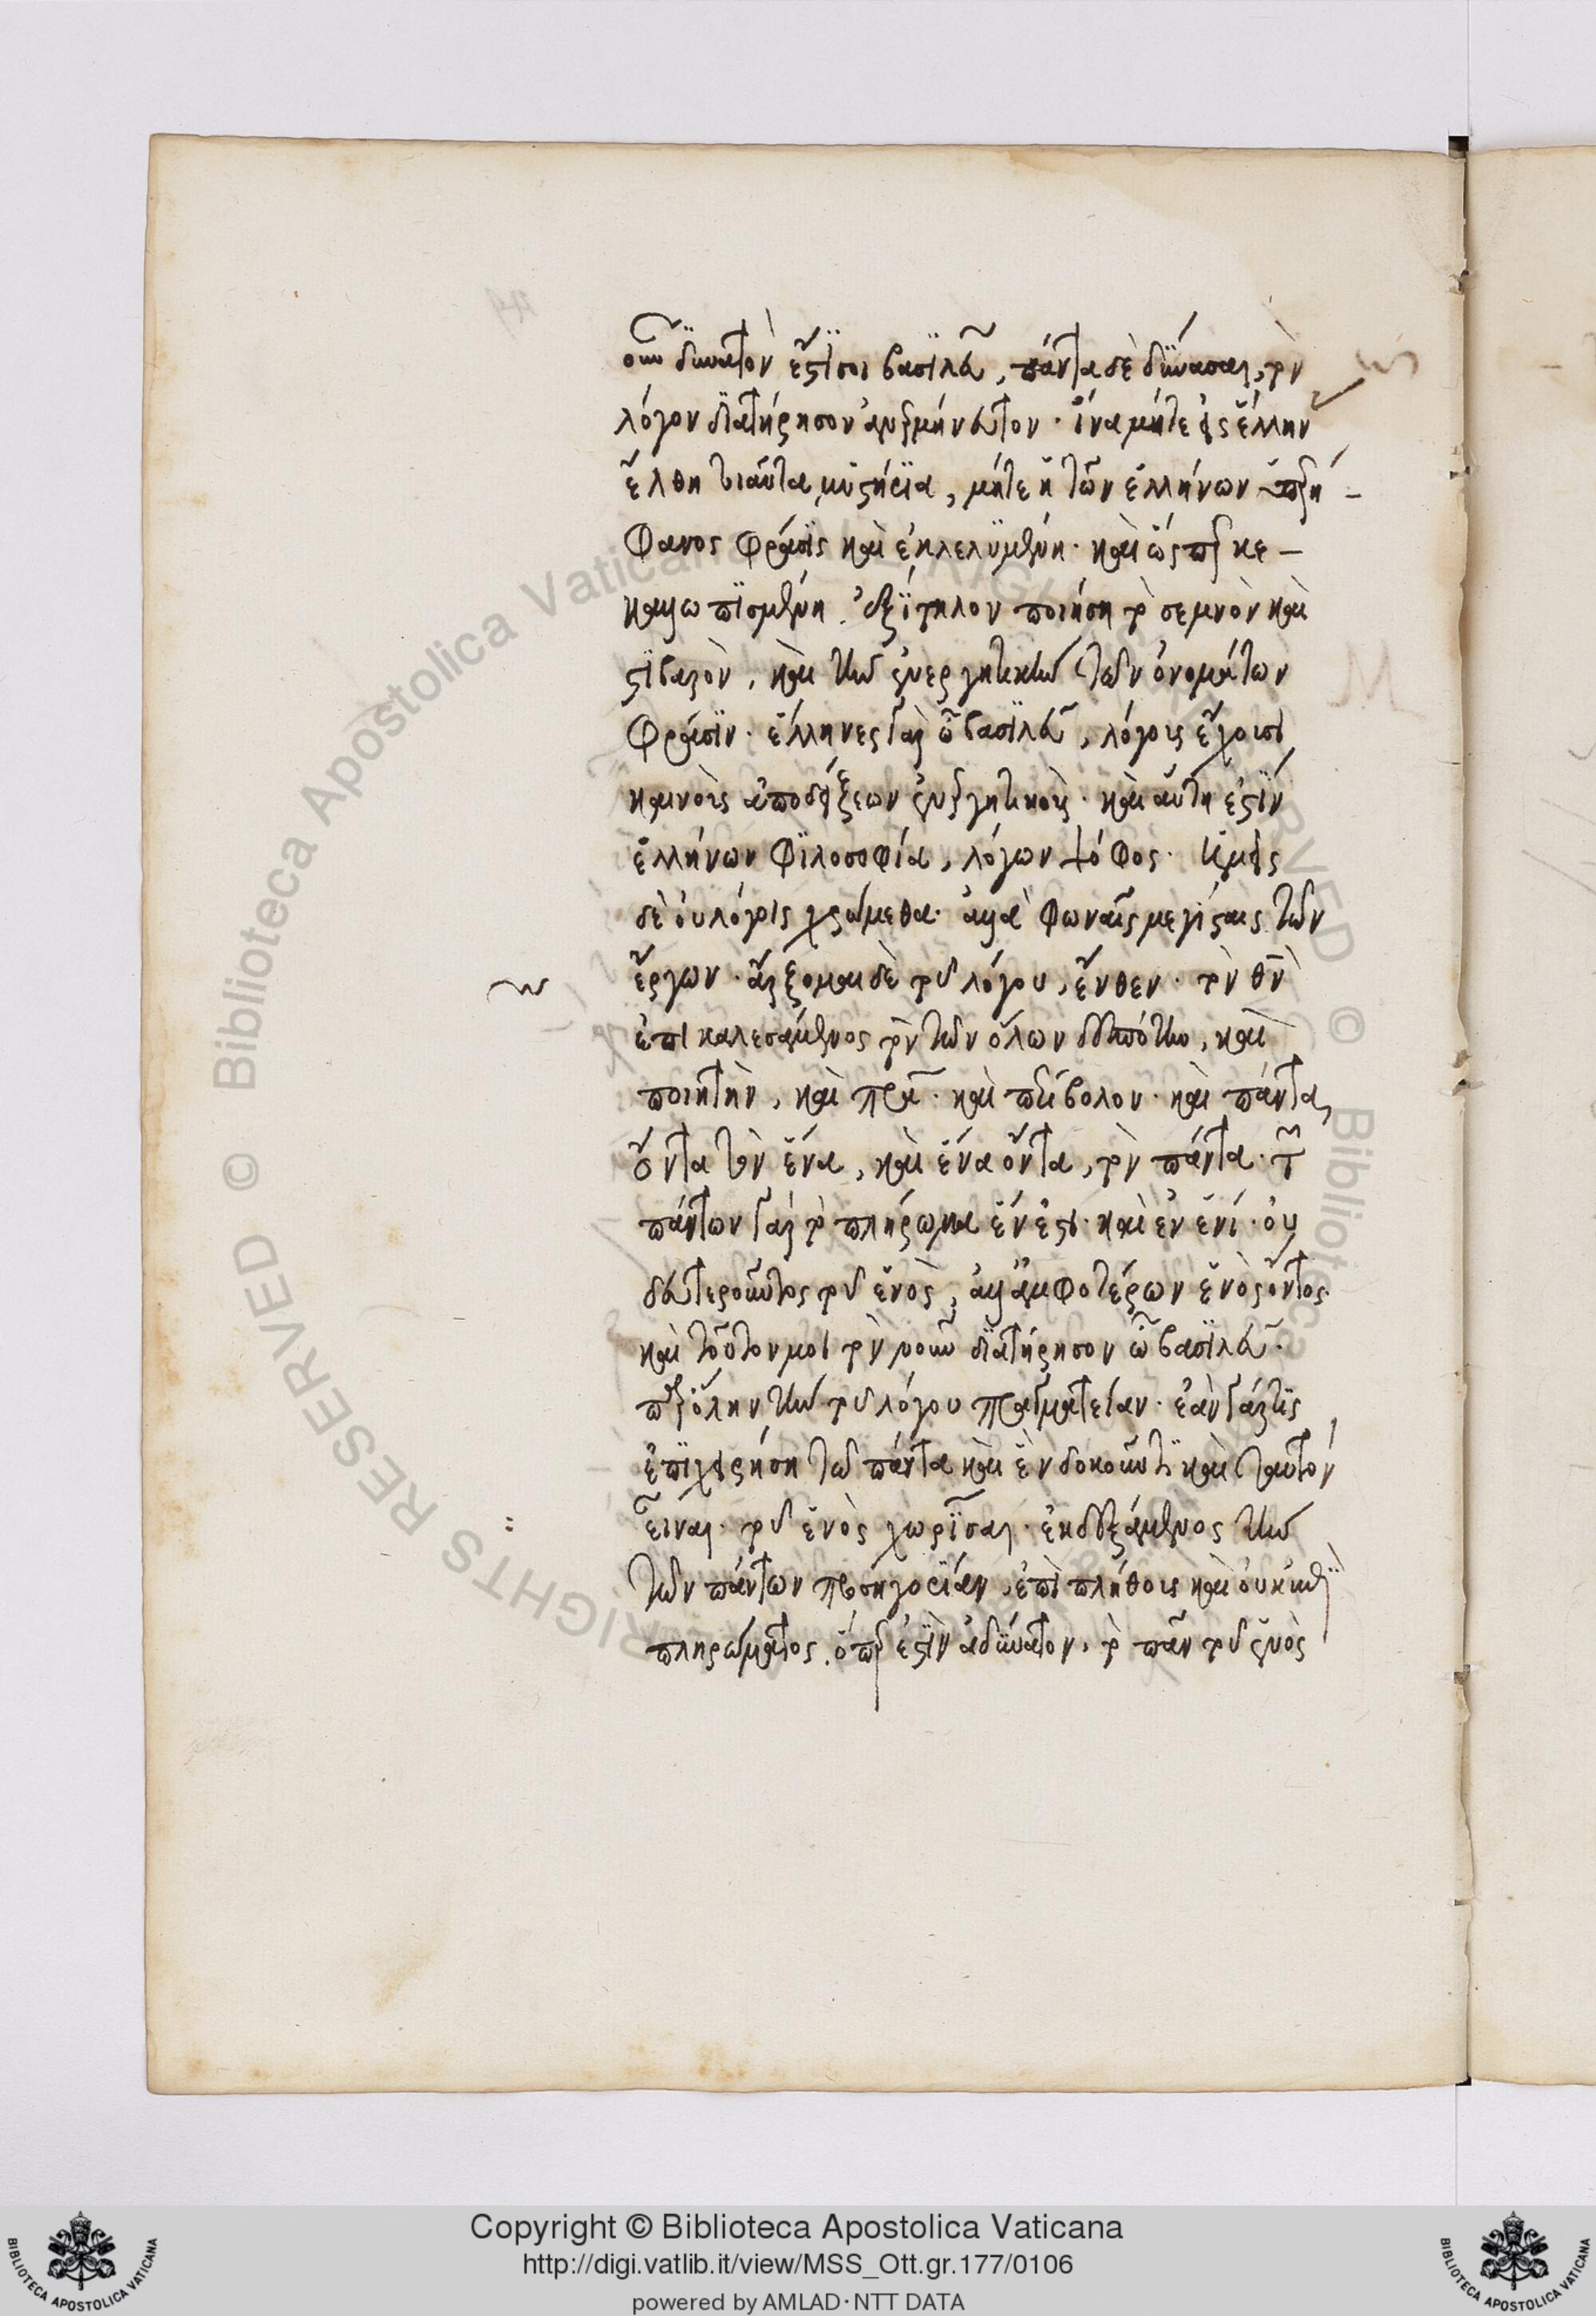 οὖν δυνατὸν ἐστί σοι βασιλεῦ, πάντα δὲ δύνασαι, τὸν
λόγον διατήρησον ἀνερμήνευτον. ἵνα μήτε εἰς ἕλλην
ἔλθῃ τοιαῦτα μυστήρια, μήτε ἡ τῶν ἑλλήνων ὑπερή-
φανος φράσις καὶ ἐκλελυμένη. καὶ ὥσπερ κε-
καλλωπισμένη. ἐξίτηλον ποιήσῃ τὸ σεμνὸν καὶ
στιβαρὸν, καὶ τὴν ἐνεργητικὴν τῶν ὀνομάτων
φράσιν. ἕλληνες γὰρ ὦ βασιλεῦ, λόγοις ἔχουσι
καινοῖς ἀποδείξεων ἐνεργητικοῖς. καὶ αὕτη ἐστὶν
ἑλλήνων φιλοσοφία, λόγων ψόφος. ἡμεῖς
δὲ οὐ λόγοις χρώμεθα. ἀλλὰ φωναῖς μεγίσταις τῶν
ἔργων. ἄρξομαι δὲ τοῦ λόγου, ἔνθεν. τὸν θν
ἐπικαλεσάμενος τὸν τῶν ὅλων δεσπότην, καὶ
ποιητὴν, καὶ πρα. καὶ περίβολον. καὶ πάντα,
ὄντα τὸν ἕνα, καὶ ἕνα ὄντα, τὸν πάντα. τῶν
πάντων γὰρ τὸ πλήρωμα ἕν ἐστι. καὶ ἐν ἑνί. οὐ
δευτεροῦντος τοῦ ἑνὸς, ἀλλ' ἀμφοτέρων ἑνὸς ὄντος.
καὶ τοῦτον μοι τὸν νοῦν διατήρησον ὦ βασιλεῦ.
παρ' ὅλην τὴν τοῦ λόγου πραγματείαν. ἐὰν γάρ τις
ἐπιχειρήσῃ τῷ πάντα καὶ ἓν δοκοῦντι καὶ ταυτὸν
εἶναι. τοῦ ἑνὸς χωρίσαι. ἐκδεξάμενος τὴν
τῶν πάντων προσηγορίαν, ἐπὶ πλήθους καὶ οὐκ ἐπὶ
πληρώματος. ὅπερ ἐστὶν ἀδύνατον, τὸ πᾶν τοῦ ἑνὸς
Copyright © Biblioteca Apostolica Vaticana
http://digi.vatlib.it/view/MSS_Ott.gr.177/0106
powered by AMLAD·NTT DATA